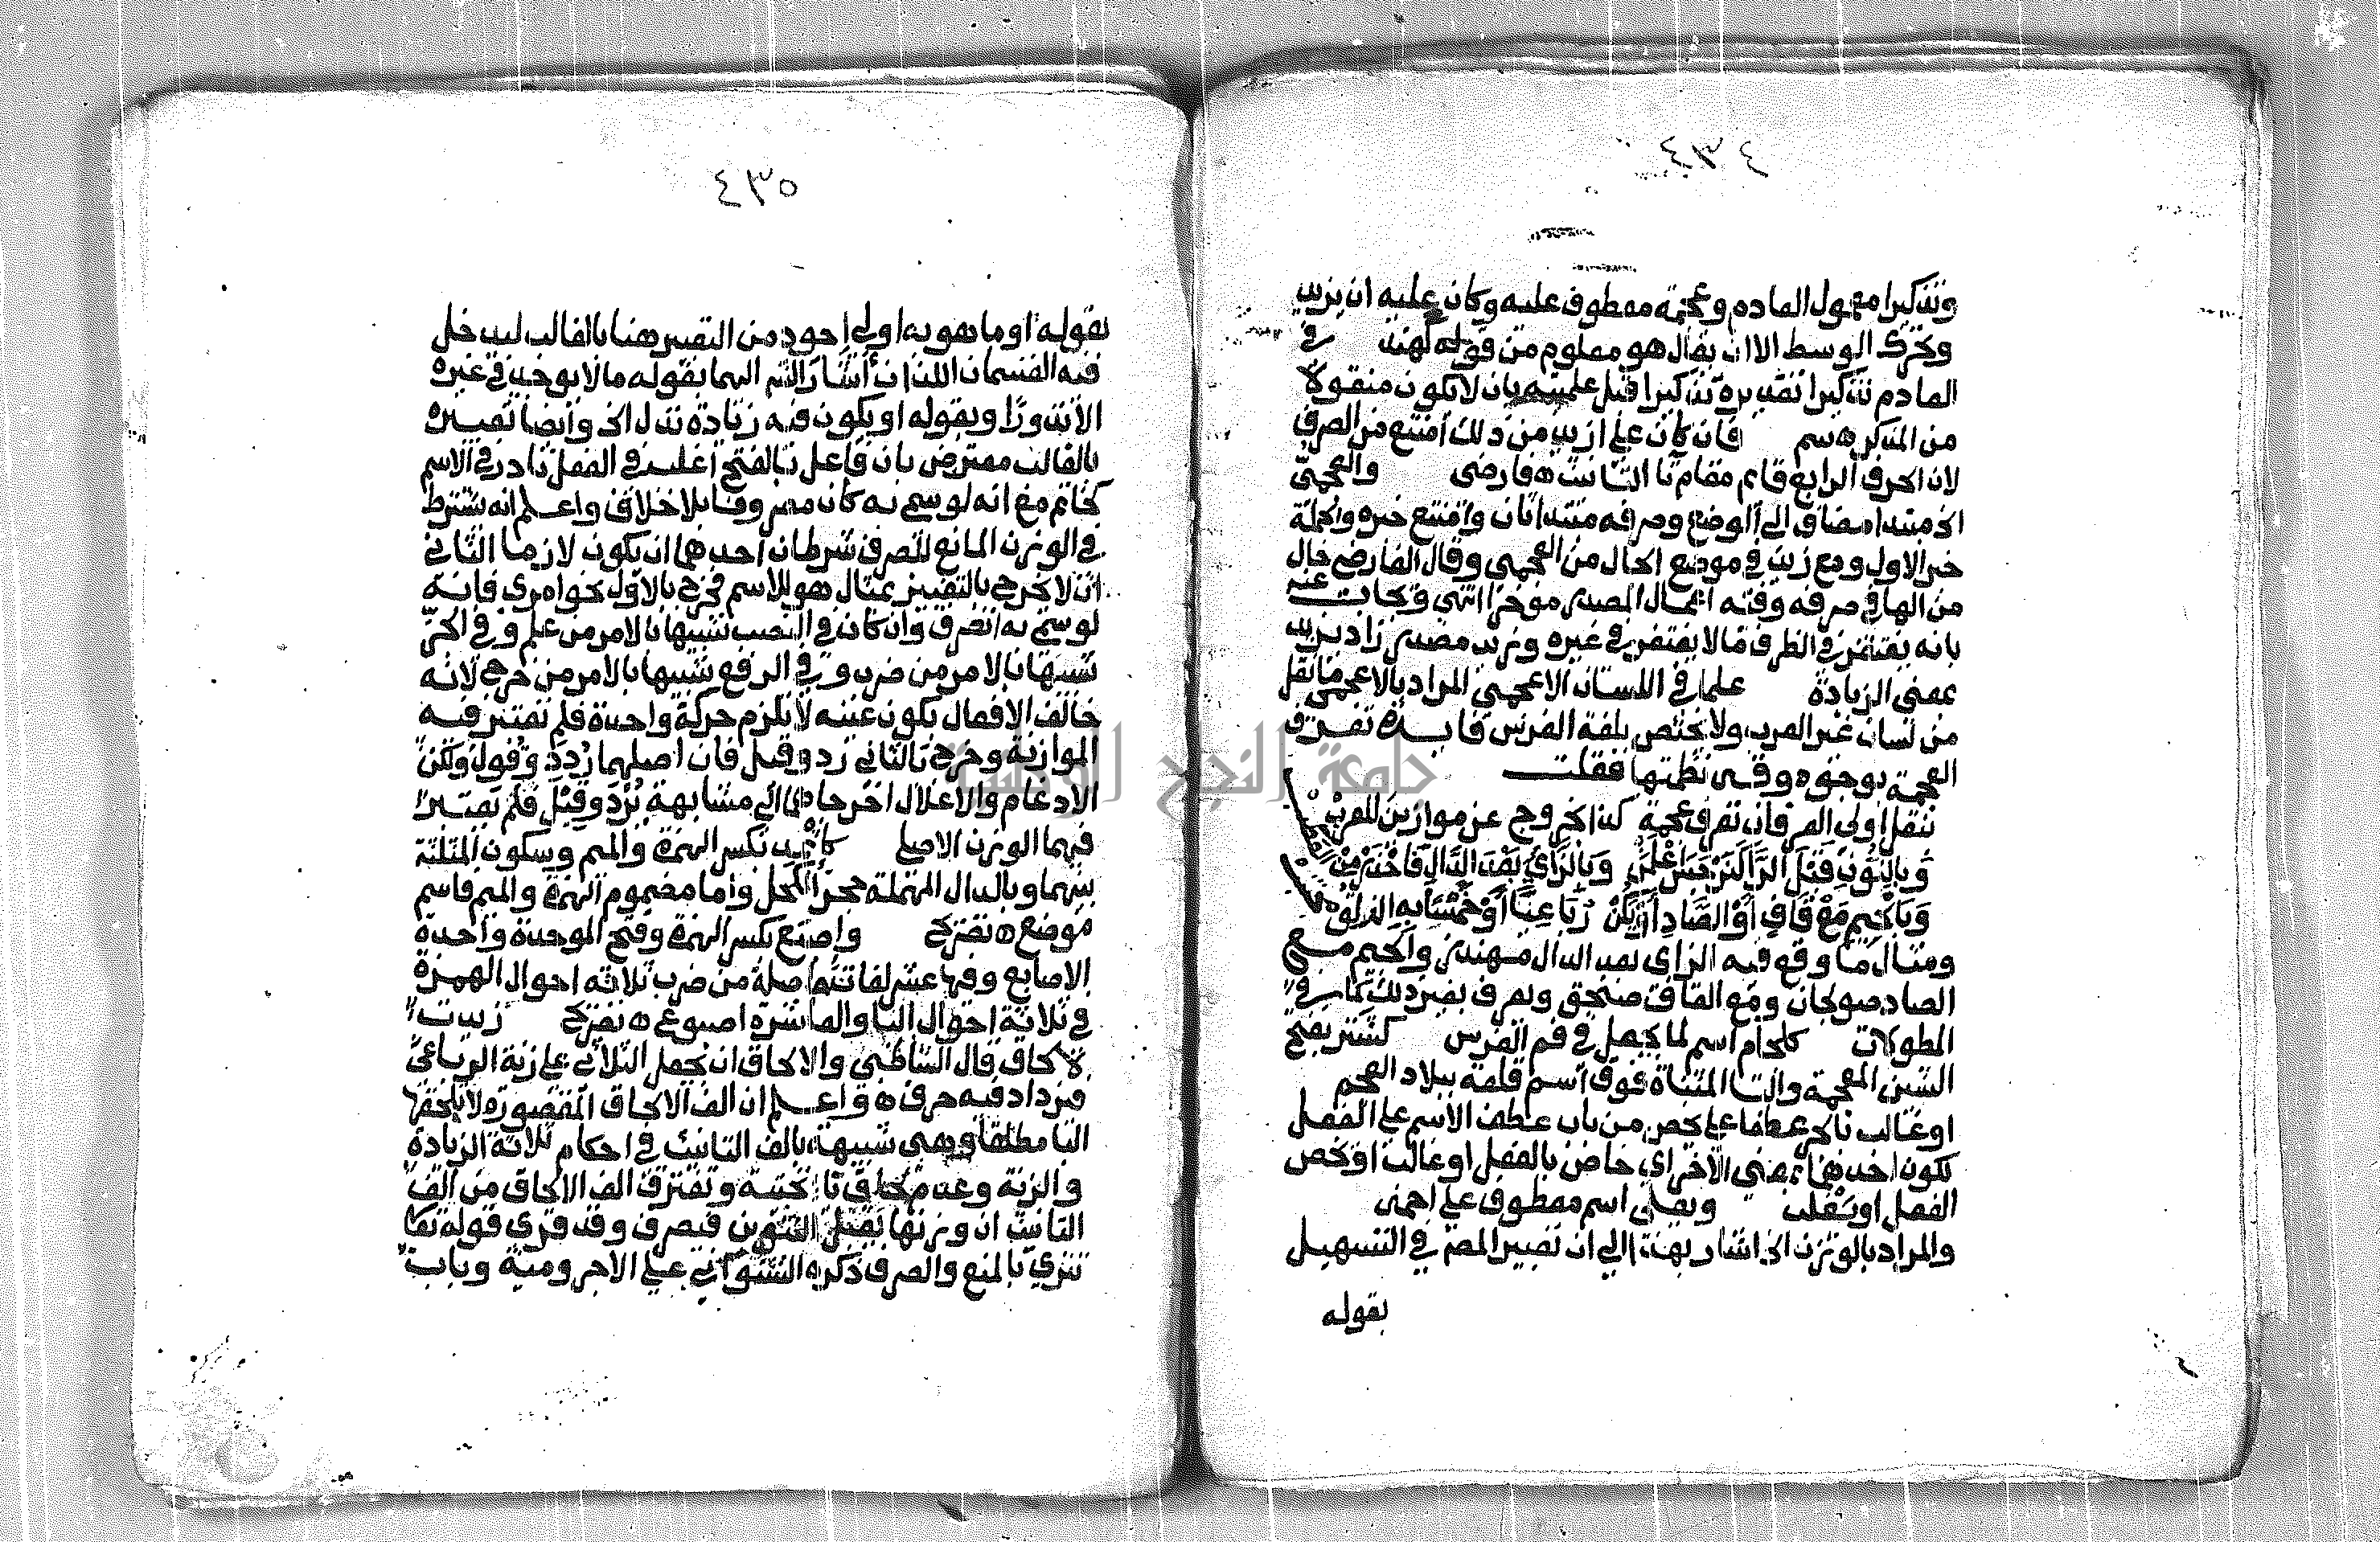 ٤٣٤
وتذكيرا معمول العادم وعجمة معطوف عليه وكان عليه ان يزيد
وتحرك الوسط الا ان يقال هو معلوم من قوله كهند في
العادم تذكيرا تقديره تذكيرا قبل علميته بان لا يكون منقولا
من المذكر ه سم فان كان علي ازيد من ذلك امتنع من الصرف
لان الحرف الرابع قايم مقام تا التانيث ه فارضي والعجمي
الخ مبتدا مضاف الي الوضع وصرفه مبتدا ثان وامتنع خبره والجملة
خبر الاول ومع زيد في موضع الحال من العجمي وقال الفارضي حال
من الها في صرفه وفيه اعمال المصدر مؤخرا انتهي ويجاب عنه
بانه يغتفر في الظرف ما لا يغتفر في غيره وزيد مصدر زاد يزيد
بمعني الزيادة علما في اللسان الاعجمي المراد بالاعجمي ما نقل
من لسان غير العرب ولا يختص بلغة الفرس فايدة تعرف
العجمة بوجوه وقد نظمتها فقلت
بنقل اولي العرفان تعرف عجمة كذا الخروج عن موازين للعرب
وبالنون قبل الرا وبالزاي بعد الدال
وبالجيم مع قاف او الصاد
ومثال ما وقع فيه الزاي بعد الدال مهندز والجيم مع
الصاد صولجان ومع القاف منجق ويعرف بغير ذلك كما في
المطولات كلجام اسم لما يجعل في فم الفرس كشتر بفتح
الشين المعجمة والتا المثناة فوق اسم قلعة ببلاد العجم
او غالب بالجر عطفا علي يخص من باب عطف الاسم علي الفعل
لكون احدهما بمعني الاخر اي خاص بالفعل او غالب او يخص
الفعل او يغلب ويعلي اسم معطوف علي احمد
والمراد بالوزن الخ اشار بهذا الي ان تعبير المص في التسهيل
بقوله
٤٣٥
بقوله او ما هو به اولي اجود من التعبير هنا بالغالب ليدخل
فيه القسمان اللذان اشار الش اليهما بقوله ما لا يوجد في غيره
الا ندورا وبقوله او يكون فيه زيادة تدل الخ وايضا تعبيره
بالغالب معترض بان فاعل بالفتح اغلب في الفعل نادر في الاسم
كخاتم مع انه لو سمي به كان مصروفا بلا خلاف واعلم انه يشترط
في الوزن المانع للصرف شرطان احدهما ان يكون لازما الثاني
ان لا يخرج بالتغيير بمثال هو للاسم فخرج بالاول نحو امرئ فانه
لو سمي به انصرف وان كان في النصب شبيها بالامر من علم وفي الجر
شبيها بالامر من ضرب وفي الرفع شبيها بالامر من خرج لانه
خالف الافعال بكون عينه لا تلزم حركة واحدة فلم تعتبر فيه
الموازنة وخرج بالثاني رد وقيل فان اصلهما ردد وقول ولكن
الادغام والاعلال اخرجاهما الي مشابهة برد وقيل فلم يعتبر
فيهما الوزن الاصلي كاثمد بكسر الهمزة والميم وسكون المثلثة
بينهما وبالدال المهملة حجر الكحل واما مضموم الهمزة والميم فاسم
موضع ه تصريح واصبع بكسر الهمزة وفتح الموحدة واحدة
الاصابع وفيها عشر لغات حاصلة من ضرب ثلاثة احوال الهمزة
في ثلاثة احوال البا والعاشرة اصبوع ه تصريح زيدت
لالحاق قال الشاطبي والالحاق ان تجعل الثلاثي علي زنة الرباعي
فتزداد فيه حرف ه واعلم ان الف الالحاق المقصورة لا تلحقها
التا مطلقا وهي شبيهة بالف التانيث في احكام ثلاثة الزيادة
والزنة وعدم لحاق تا وتفترق الف الالحاق من الف
التانيث ان وزنها يقبل التنوين فيصرف وقد قري قوله تعا
تتري بالمنع والصرف ذكره الشنواني علي الاجرومية وباب